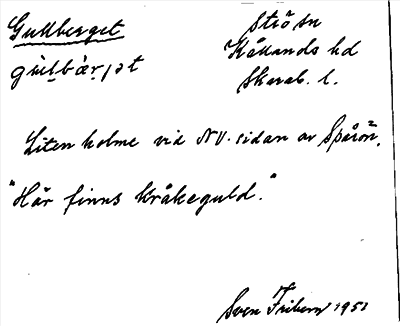 Gullberget
Strö sn
gùl̥bær̥jət
Kållands hd
Skarab. l.
Liten holme vid NV. sidan av Spårön.
"Här finns kråkeguld."
Sven Friberg 1951